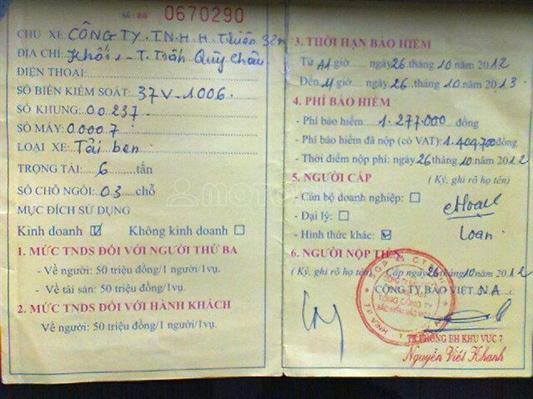 Số: BB 0670290
CHỦ XE: CÔNG TY TNHH Thiên Sơn
ĐỊA CHỈ: Khối 1 - T.Trấn Quỳ Châu
ĐIỆN THOẠI:
SỐ BIỂN KIỂM SOÁT: 37V-1006
SỐ KHUNG: 00237
SỐ MÁY: 00007
LOẠI XE: Tải ben
TRỌNG TẢI: 6 tấn
SỐ CHỖ NGỒI: 03 chỗ
MỤC ĐÍCH SỬ DỤNG
Kinh doanh ☑ Không kinh doanh ☐
1. MỨC TNDS ĐỐI VỚI NGƯỜI THỨ BA
- Về người: 50 triệu đồng/1 người/1vụ.
- Về tài sản: 50 triệu đồng/1vụ.
2. MỨC TNDS ĐỐI VỚI HÀNH KHÁCH
Về người: 50 triệu đồng/1 người/1vụ.
3. THỜI HẠN BẢO HIỂM
Từ giờ ngày 26 tháng 10 năm 2012
Đến giờ ngày 26 tháng 10 năm 2013
4. PHÍ BẢO HIỂM
- Phí bảo hiểm: 1.277.000 đồng
- Phí bảo hiểm đã nộp (có VAT): 1.404.700 đồng
- Thời điểm nộp phí: ngày 26 tháng 10 năm 2012
5. NGƯỜI CẤP (Ký, ghi rõ họ tên)
- Cán bộ doanh nghiệp: ☐
- Đại lý: ☐
- Hình thức khác: ☑ Loan
6. NGƯỜI NỘP TIỀN
(Ký, ghi rõ họ tên) Cấp ngày 26 tháng 10 năm 2012
CÔNG TY BẢO VIỆT N.A
TP. PHÒNG BH KHU VỰC 7
Nguyễn Viết Khanh